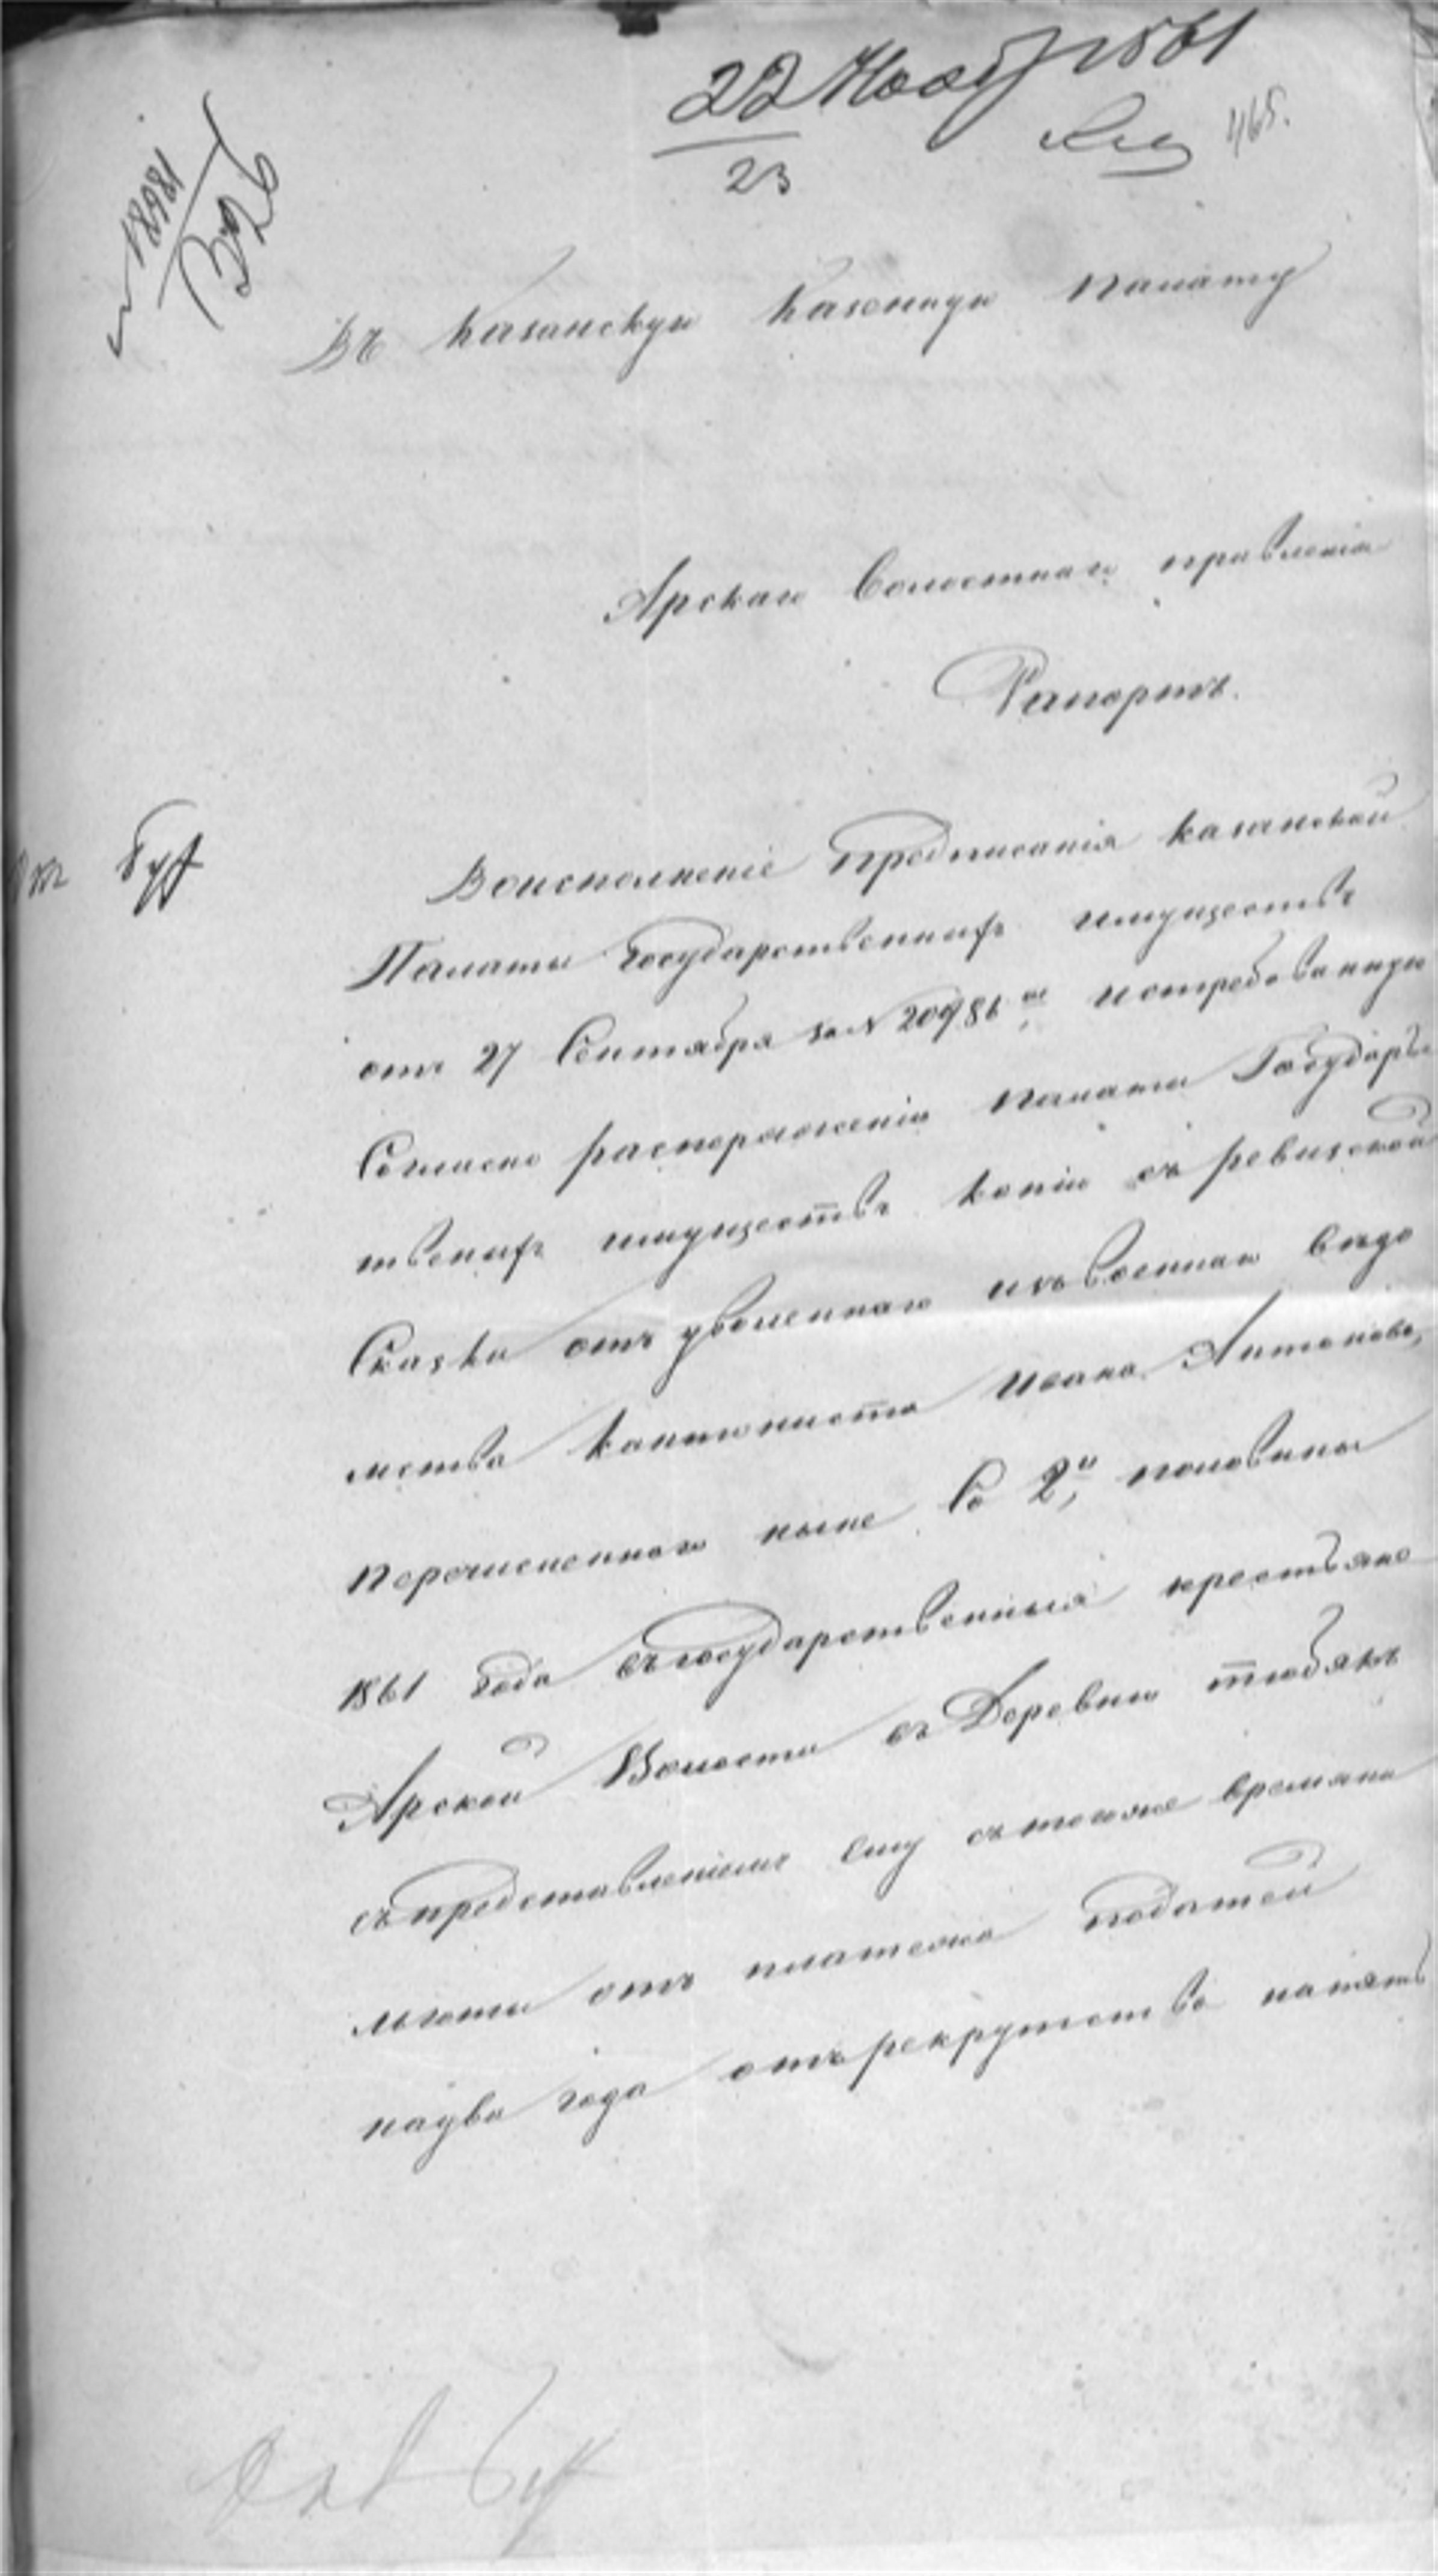 22 Нояб 1861
23
465.
18681
Въ Казанскую Казенную палату
Арскаго Волостнаго правленія
Рапортъ.
Воисполненіе предписанія казанской
Палаты Государственныхъ имуществъ
отъ 27 Сентября за N 20986 истребованную
Согласно распоряженію палаты Государс
твеныхъ имуществъ копію съ ревизской
Сказки отъ уволеннаго изъ военнаго вѣдо
мства кантониста Ивана Антонова,
перечисленнаго ныне Со 2й половины
1861 года въ государственныя крестьяне
Арской Волости въ Деревню тюбякъ
съ предоставленіемъ ему стогоже времяни
льготы отъ платежа податей
надва года отъ рекрутства напять